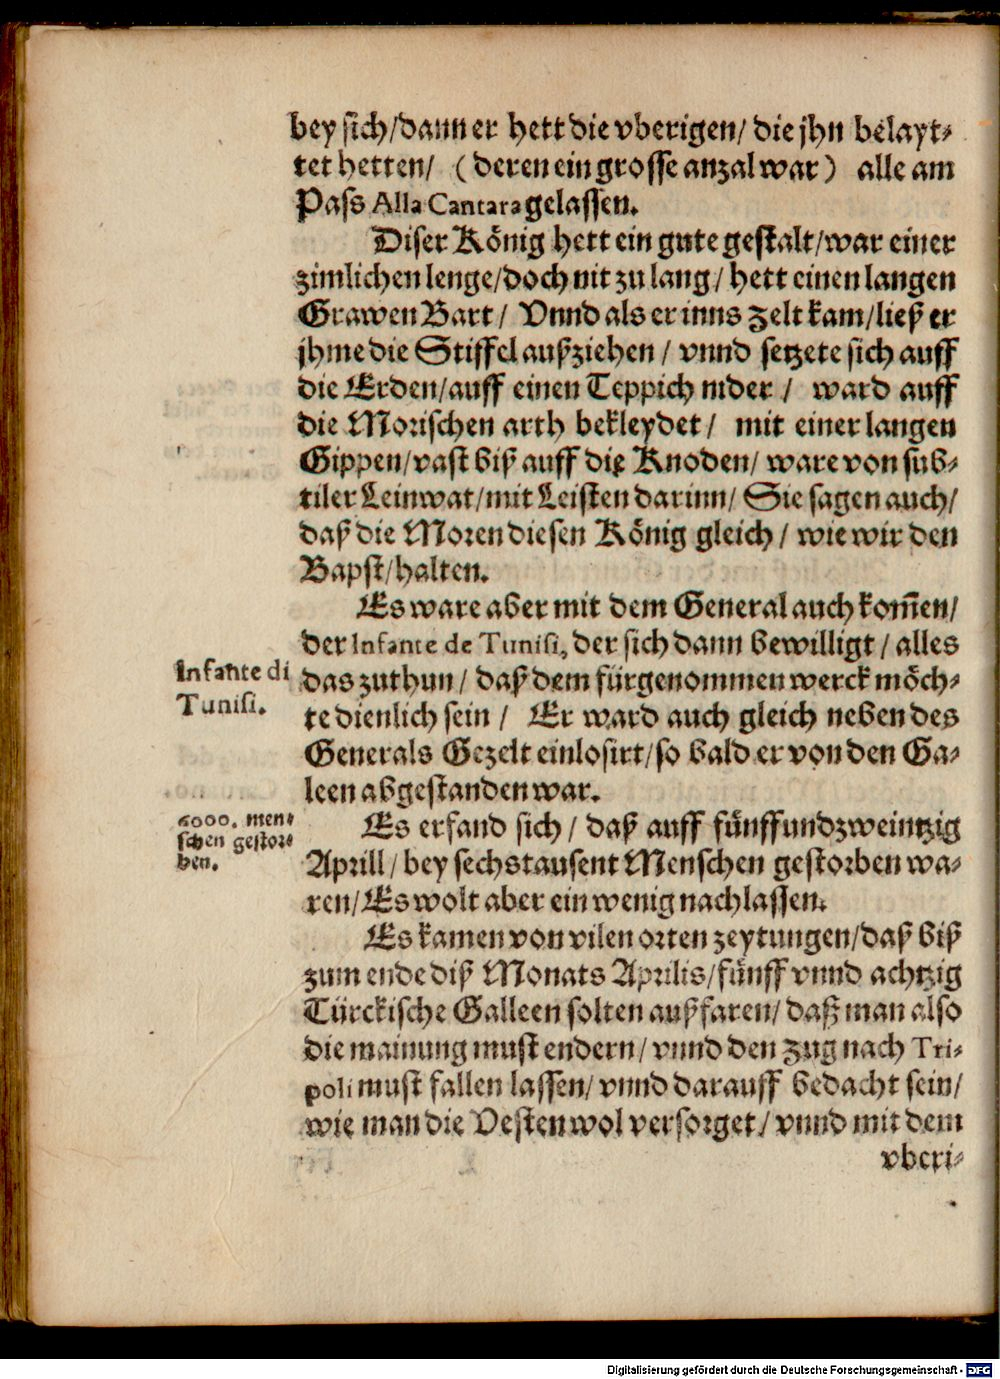 bey sich/dann er hett die vberigen/ die jhn belayt-
tet hetten/ (deren ein grosse anzal war) alle am
Pass Alla Cantara gelassen.
Diser König hett ein gute gestalt/war einer
zimlichen lenge/doch nit zu lang/ hett einen langen
Grawen Bart/ Vnnd als er inns Zelt kam/ließ er
jhme die Stiffel außziehen/ vnnd setzete sich auff
die Erden/auff einen Teppich nider/ ward auff
die Morischen arth bekleydet/ mit einer langen
Gippen/vast biß auff die Knoden/ ware von sub-
tiler Leinwat/mit Leisten darinn/ Sie sagen auch/
daß die Moren diesen König gleich/ wie wir den
Bapst/halten.
Es ware aber mit dem General auch kom̃en/
der Infante de Tunisi, der sich dann bewilligt/ alles
Infante di
Tunisi.
das zuthun/ daß dem fürgenommen werck möch-
te dienlich sein/ Er ward auch gleich neben des
Generals Gezelt einlosirt/so bald er von den Ga-
leen abgestanden war.
6000. men-
schen gestor-
ben.
Es erfand sich/ daß auff fünffundzweintzig
Aprill/bey sechstausent Menschen gestorben wa-
ren/Es wolt aber ein wenig nachlassen.
Es kamen von vilen orten zeytungen/daß biß
zum ende diß Monats Aprilis/fünff vnnd achtzig
Türckische Galleen solten außfaren/ daß man also
die mainung must endern/ vnnd den Zug nach Tri-
poli must fallen lassen/ vnnd darauff bedacht sein/
wie man die Vesten wol versorget/ vnnd mit dem
vberi-
Digitalisierung gefördert durch die Deutsche Forschungsgemeinschaft - DFG